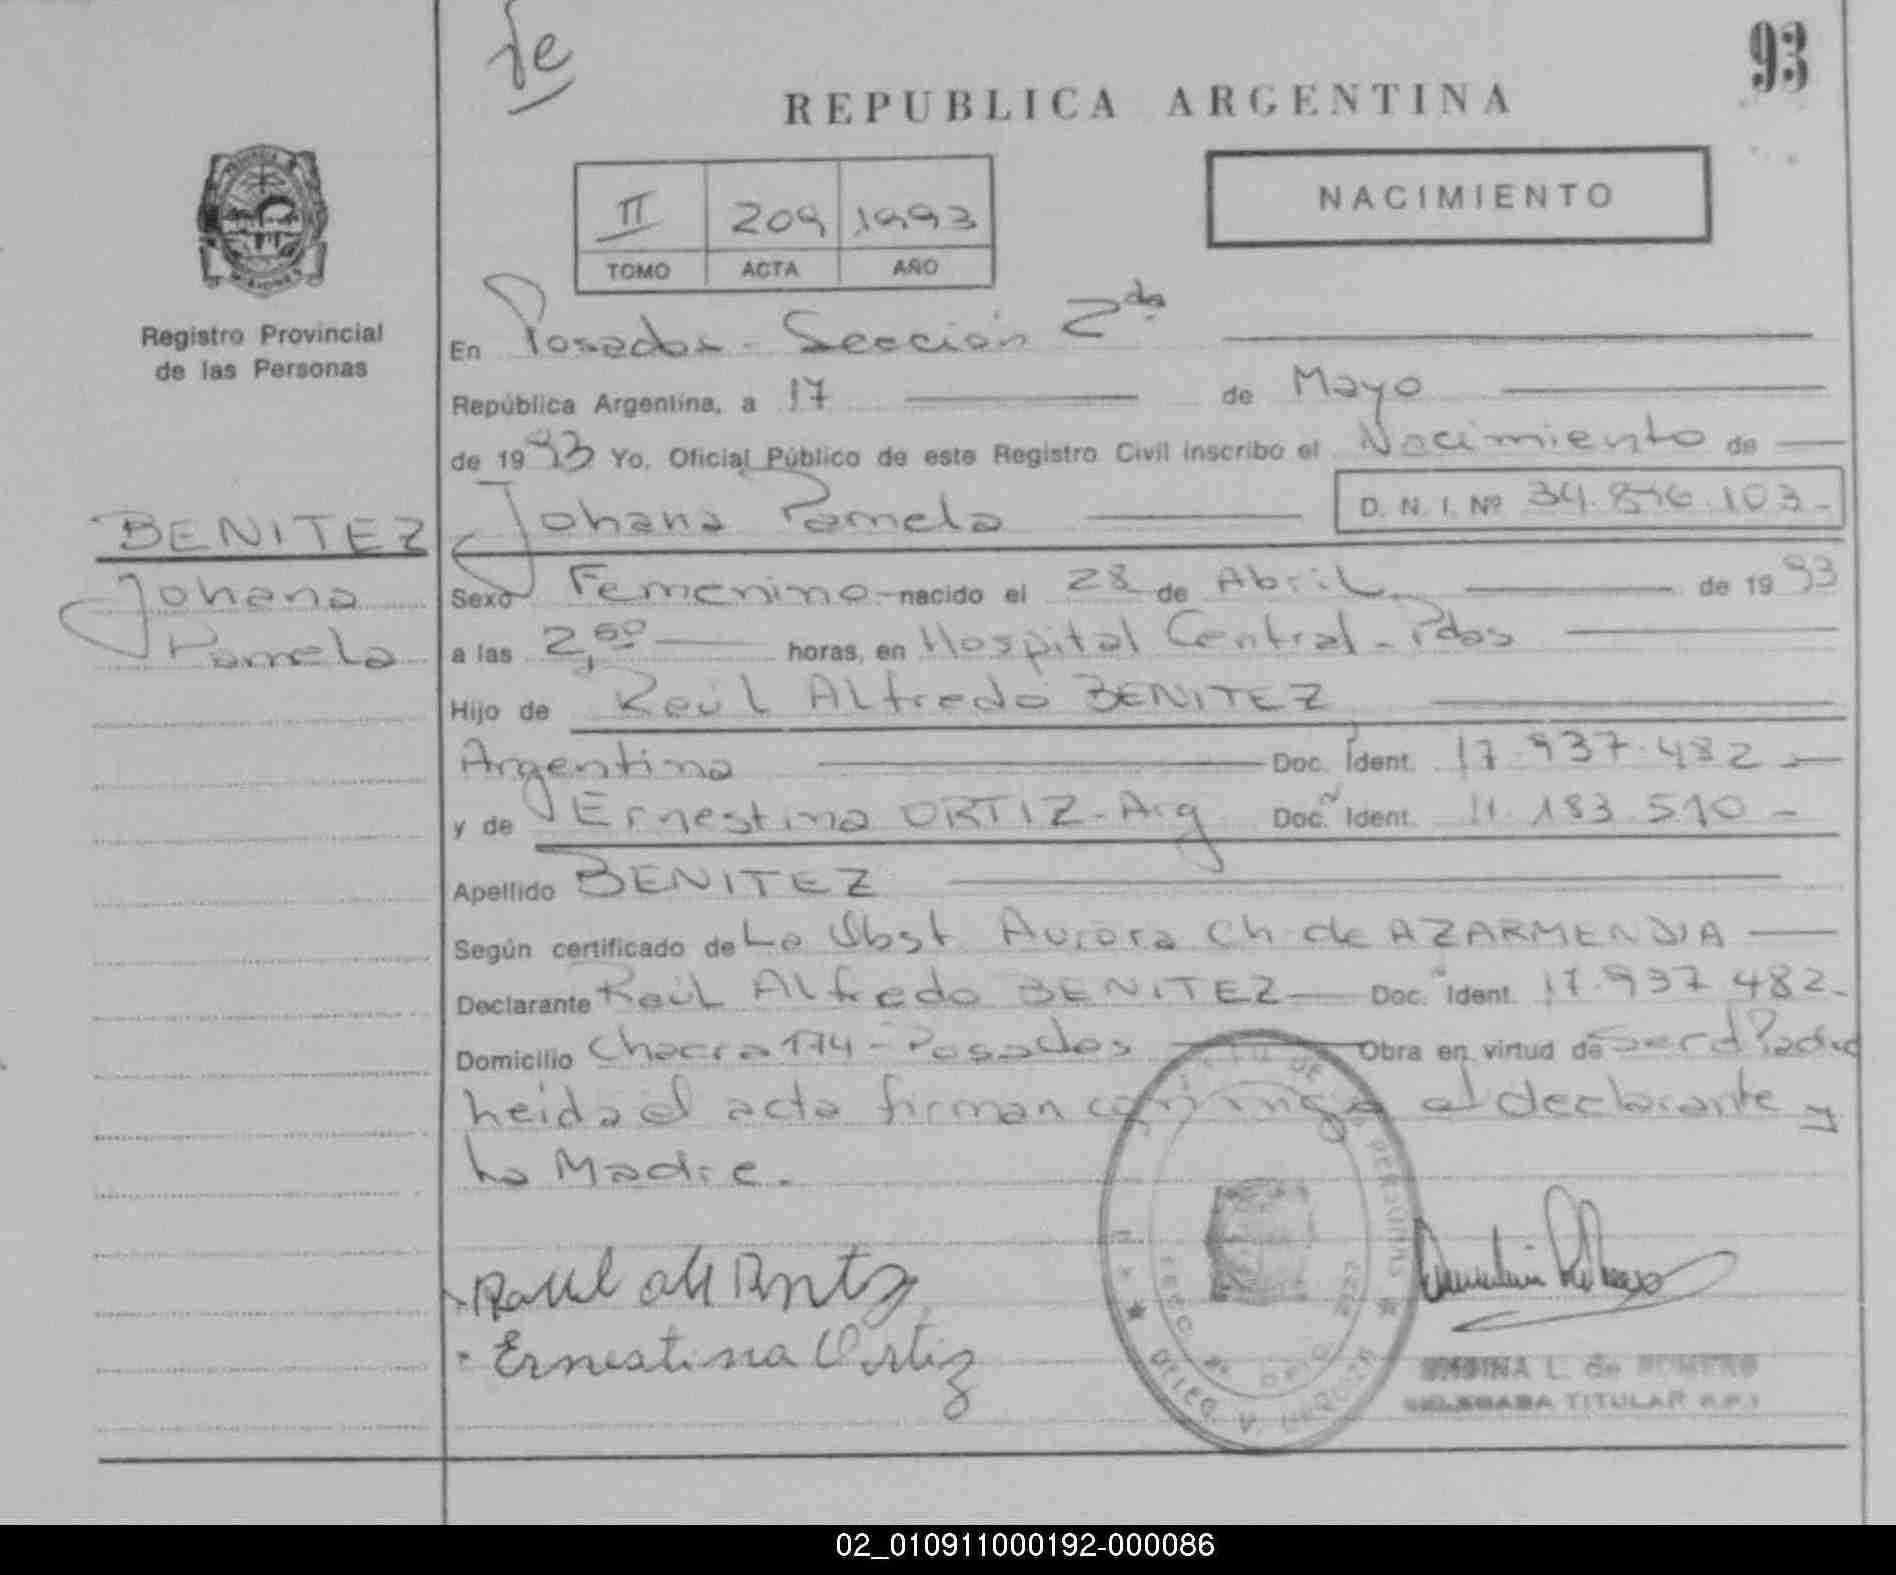 93
REPUBLICA ARGENTINA
NACIMIENTO
II 209 1993
TOMO ACTA AÑO
Registro Provincial
de las Personas
En Posadas - Sección 2da
República Argentina, a 17 de Mayo
de 1993 Yo, Oficial Público de este Registro Civil inscribo el Nacimiento de
Johana Pamela D. N. I. Nº 34.896.103-
BENITEZ
Johana
Pamela
Sexo Femenino nacido el 28 de Abril de 1993
a las 2,50 horas, en Hospital Central - Pdas
Hijo de Raúl Alfredo BENITEZ
Argentina Doc. Ident. 17.937.482
y de Ernestina ORTIZ - Arg Doc. Ident. 11.183.510 -
Apellido BENITEZ
Según certificado de La Obst Aurora Ch de AZARMENDIA
Declarante Raúl Alfredo BENITEZ Doc. Ident. 17.937.482-
Domicilio Chacra 174 - Posadas Obra en virtud de Ser el Padre
leida el acta firman conmigo el declarante y
la Madre.
Raul Alf
Ernestina Ortiz
L. de ROMERO
DELEGADA TITULAR
02_010911000192-000086